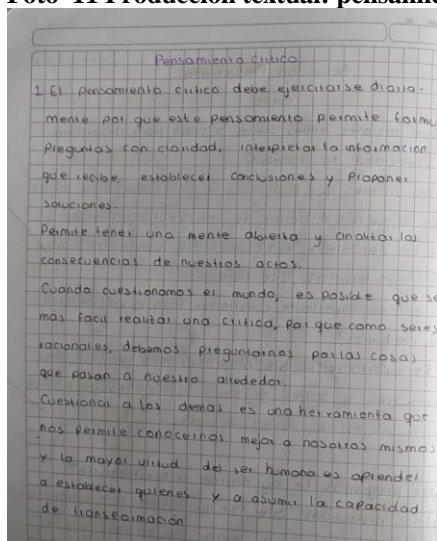 Foto 11 Producción textual: pensamie
Pensamiento critico
1 El pensamiento critico debe ejercitarse diaria-
mente por que este pensamiento permite formu
Preguntas con claridad, interpretar la informacion
que recibe, establecer conclusiones y Proponer
soluciones.
Permite tener una mente abierta y analizar las
consecuencias de nuestros actos.
Cuando cuestionamos el mundo, es posible que se
más facil realizar una critica, por que como seres
racionales, debemos preguntarnos por las cosas
que pasan a nuestro alrededor.
Cuestionar a los demas es una herramienta que
nos permite conocernos mejor a nosotros mismos
y la mayor virtud del ser humano es aprender
a establecer quienes y a asumir la capacidad
de transformación